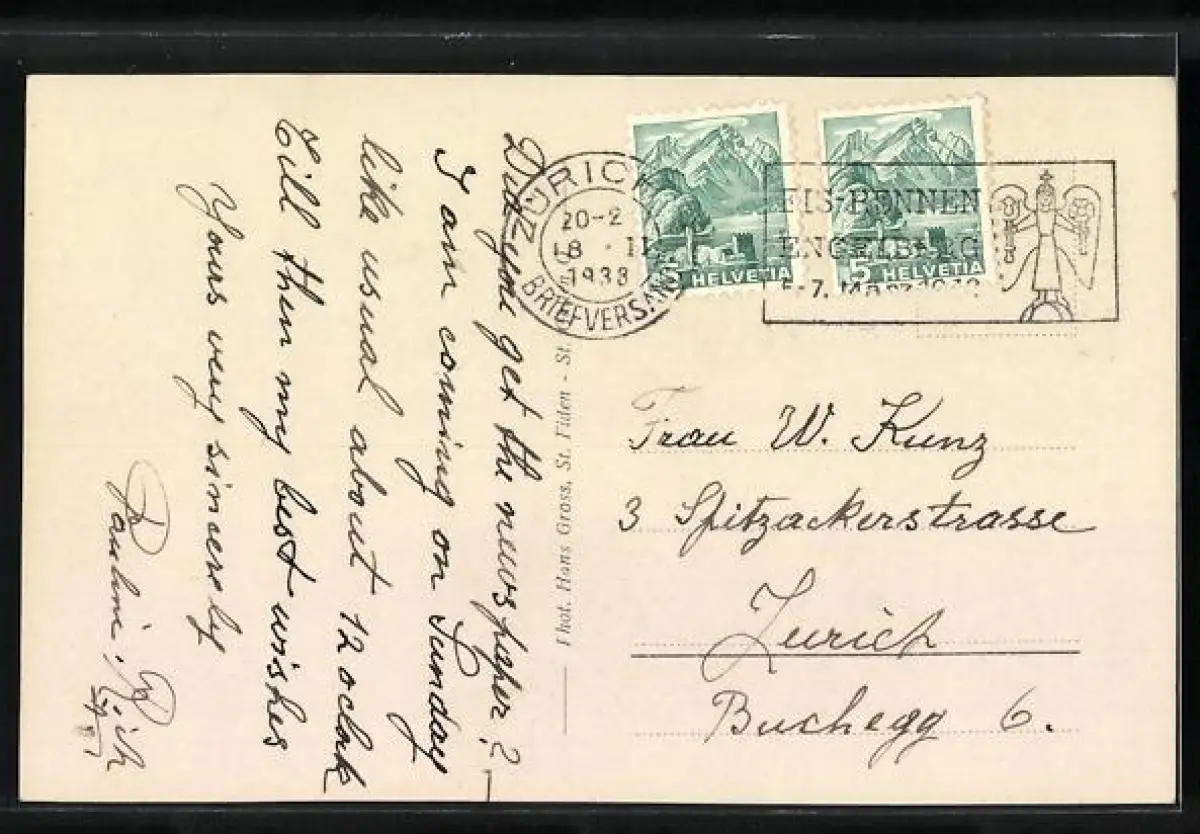 Did you get the newspaper?
I am coming on Sunday
like usual about 12 oclock
Till then my best wishes
Yours very sincerely
Pauline Rich
Phot. Hans Gross, St. Fiden - St.
ZÜRICH
20-2
18 · II
1938
BRIEFVERSAND
HELVETIA
5 HELVETIA
FIS-RENNEN
ENGELBERG
5-7. März 1938
Frau W. Kunz
3 Spitzackerstrasse
Zurich
Buchegg 6.